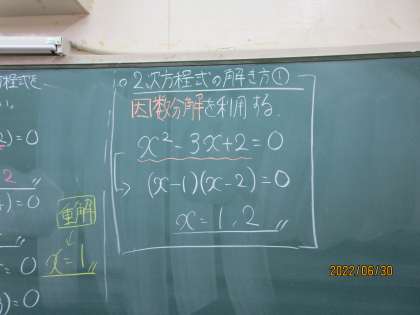 方程式を
=0
2
=0
=0
=0
重解
x=1
○2次方程式の解き方①
因数分解を利用する.
x²-3x+2=0
(x-1)(x-2)=0
x=1,2
2022/06/30